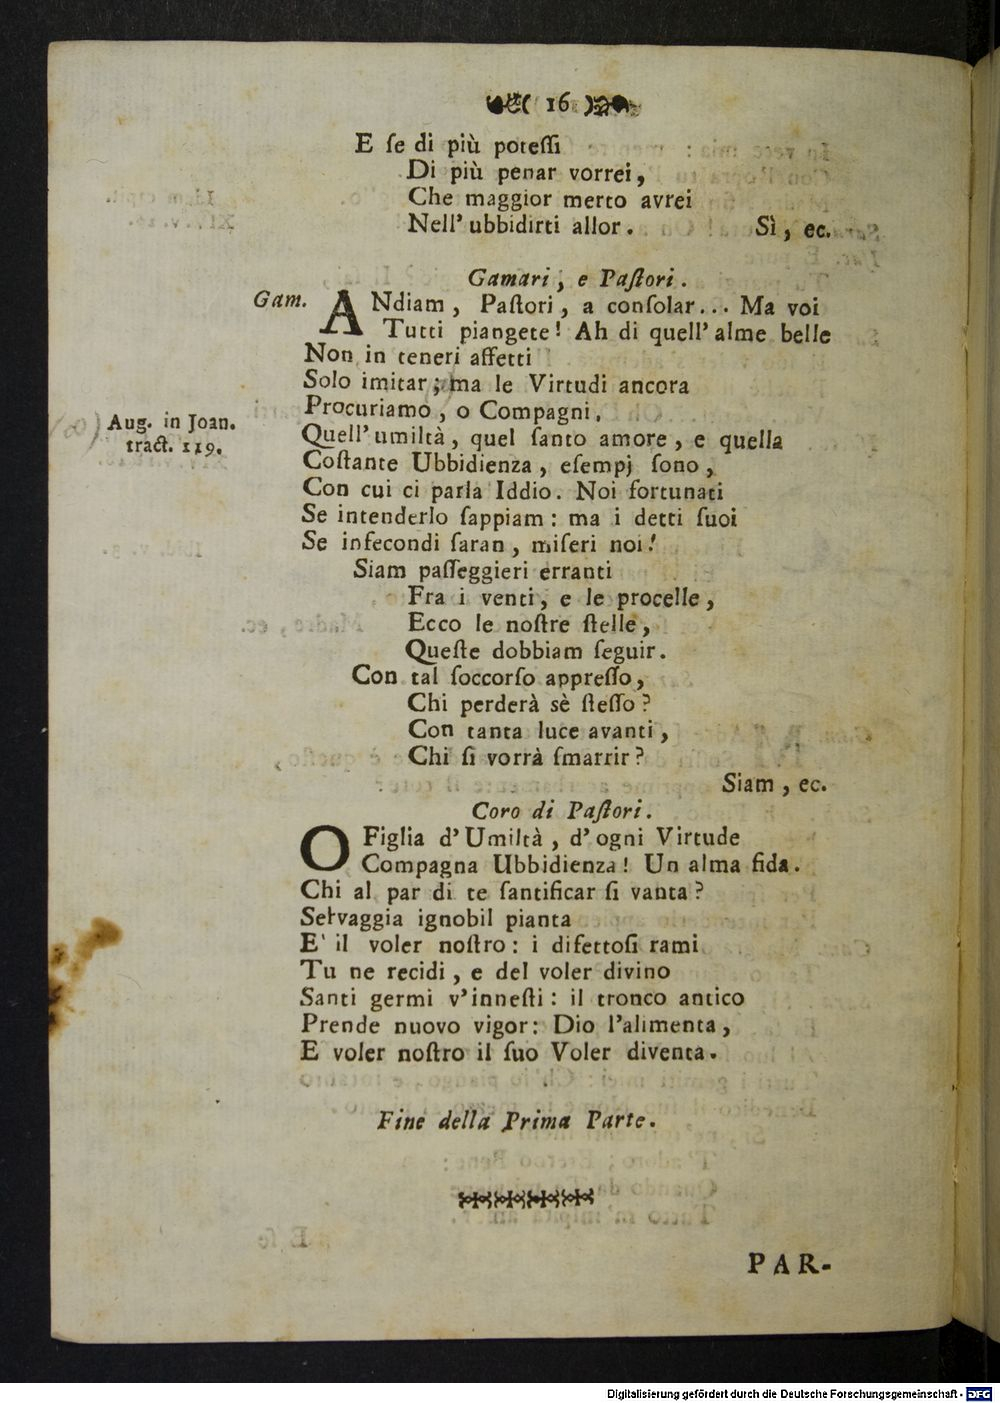 ( 16 )
E ſe di più poteſſi
Di più penar vorrei,
Che maggior merto avrei
Nell' ubbidirti allor. Sì, ec.
Gamari, e Paſtori.
Gam. ANdiam, Paſtori, a conſolar... Ma voi
Tutti piangete! Ah di quell' alme belle
Non in teneri affetti
Solo imitar; ma le Virtudi ancora
Procuriamo, o Compagni,
Aug. in Joan.
tract. 119.
Quell' umiltà, quel ſanto amore, e quella
Coſtante Ubbidienza, eſempj ſono,
Con cui ci parla Iddio. Noi fortunati
Se intenderlo ſappiam: ma i detti ſuoi
Se infecondi ſaran, miſeri noi!
Siam paſſeggieri erranti
Fra i venti, e le procelle,
Ecco le noſtre ſtelle,
Queſte dobbiam ſeguir.
Con tal ſoccorſo appreſſo,
Chi perderà sè ſteſſo?
Con tanta luce avanti,
Chi ſi vorrà ſmarrir?
Siam, ec.
Coro di Paſtori.
O Figlia d' Umiltà, d' ogni Virtude
Compagna Ubbidienza! Un alma fida.
Chi al par di te ſantificar ſi vanta?
Selvaggia ignobil pianta
E' il voler noſtro: i difettoſi rami
Tu ne recidi, e del voler divino
Santi germi v' inneſti: il tronco antico
Prende nuovo vigor: Dio l' alimenta,
E voler noſtro il ſuo Voler diventa.
Fine della Prima Parte.
PAR-
Digitalisierung gefördert durch die Deutsche Forschungsgemeinschaft - DFG